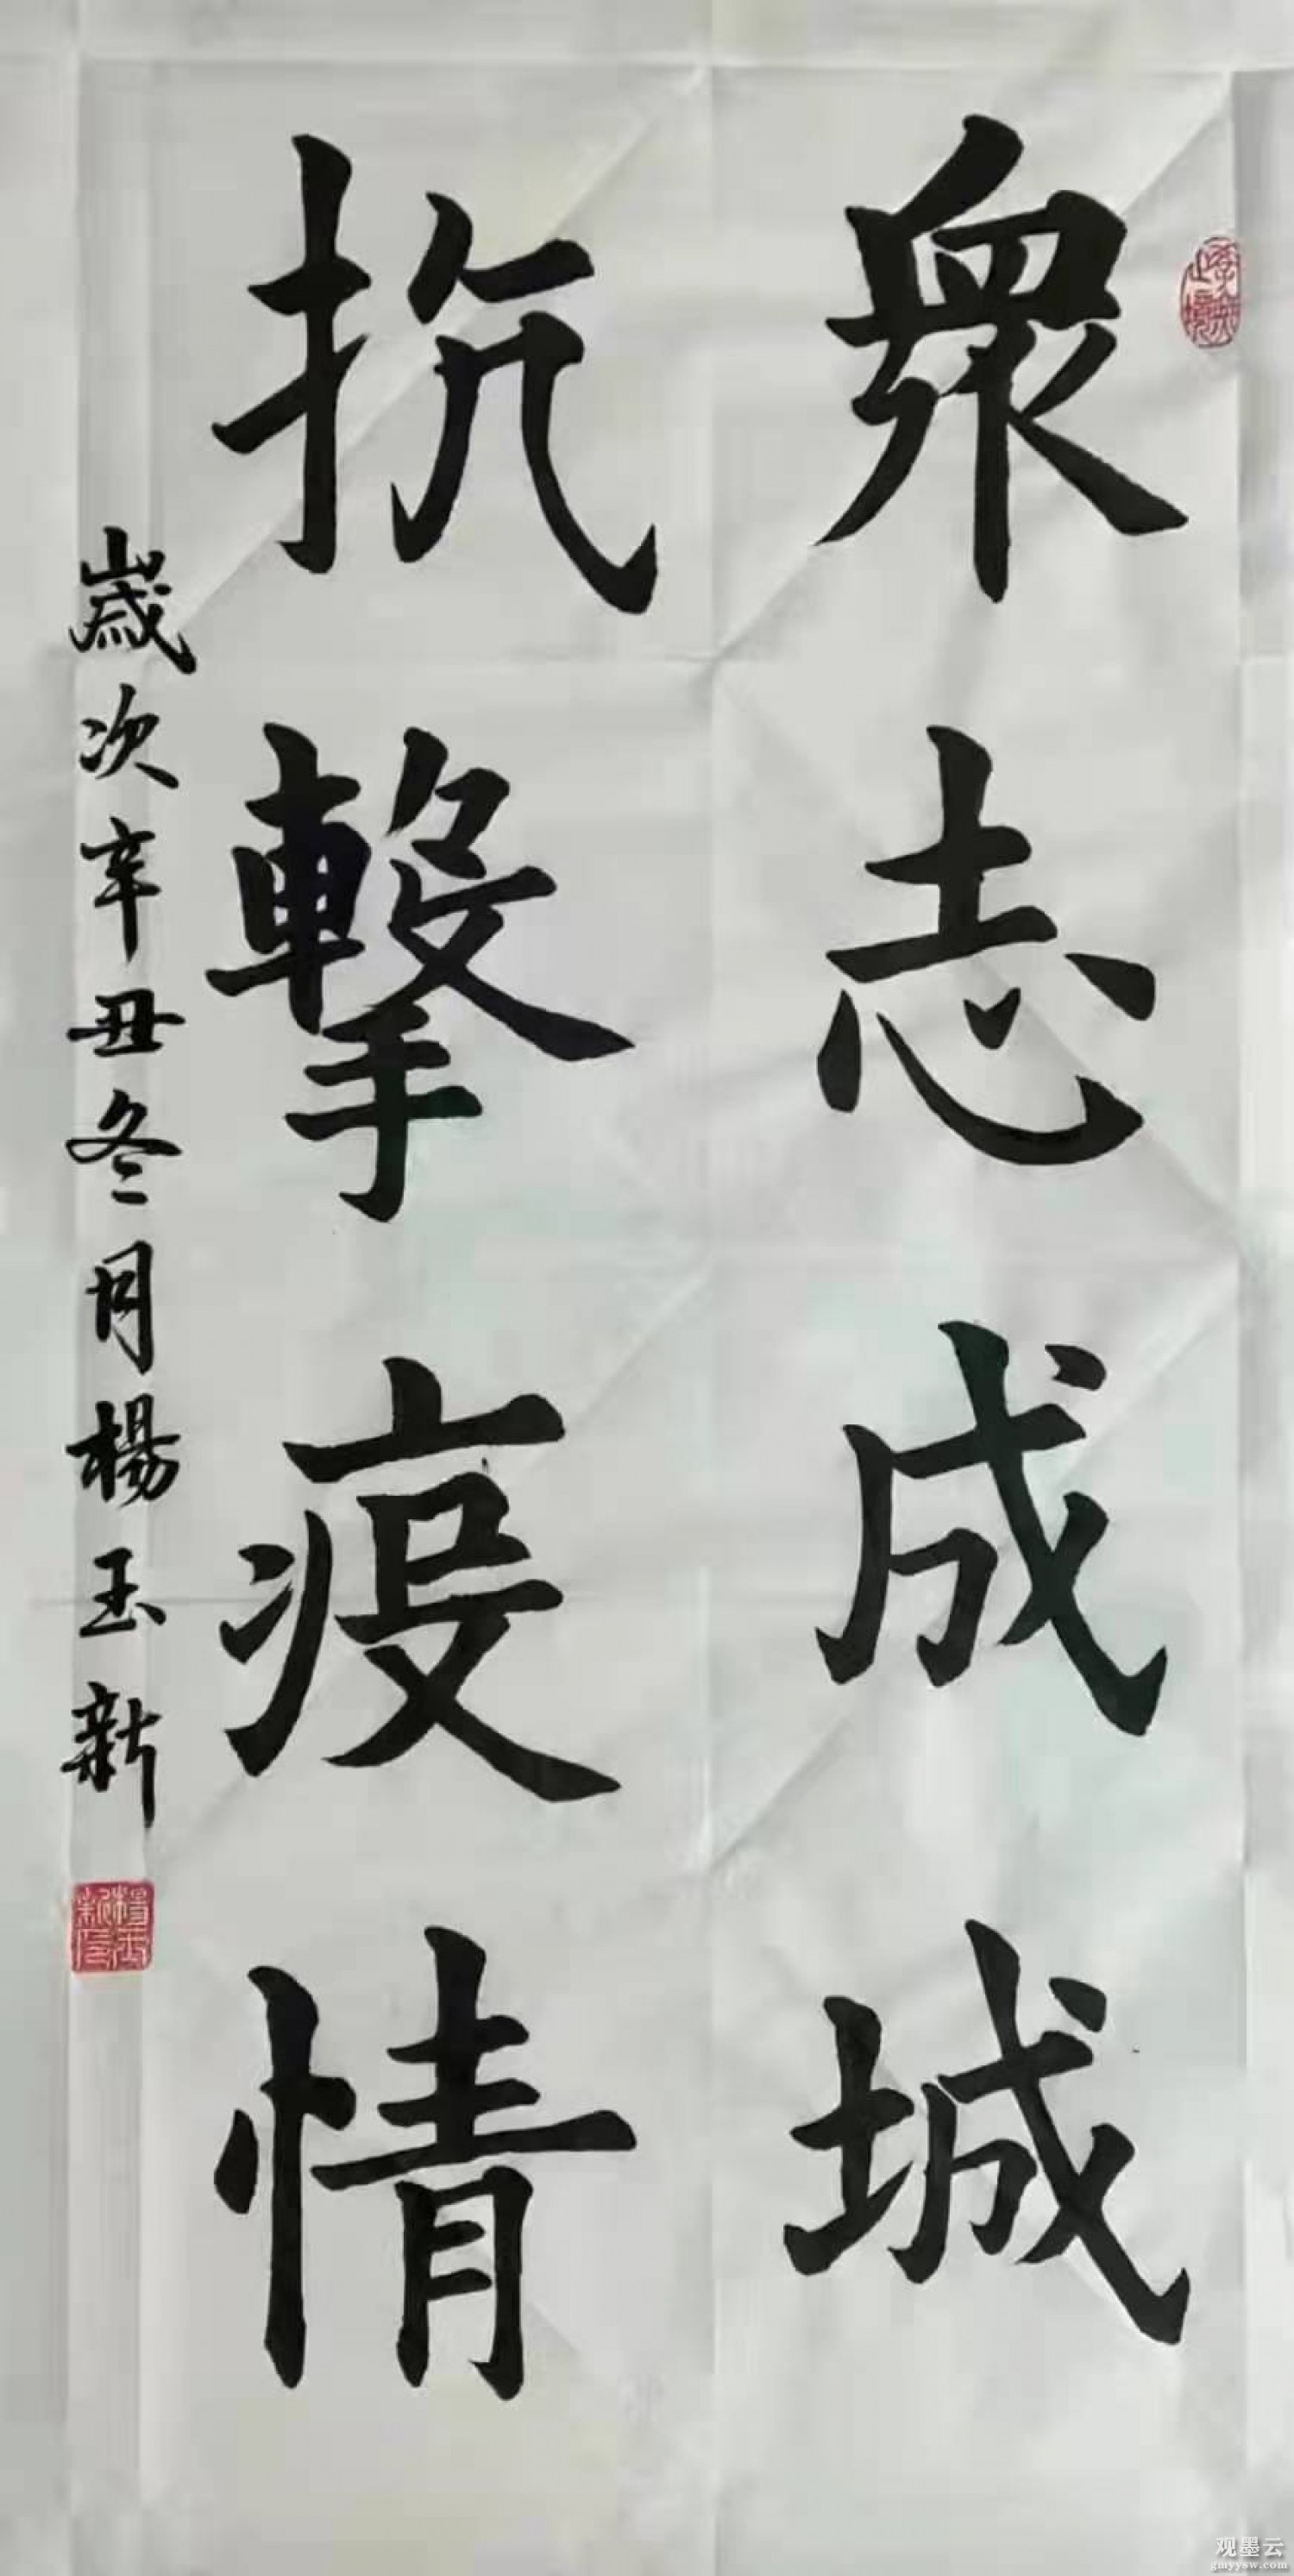 衆志成城
抗擊疫情
歲次辛丑冬月楊玉新
楊玉新印
观墨云
gmyysw.com